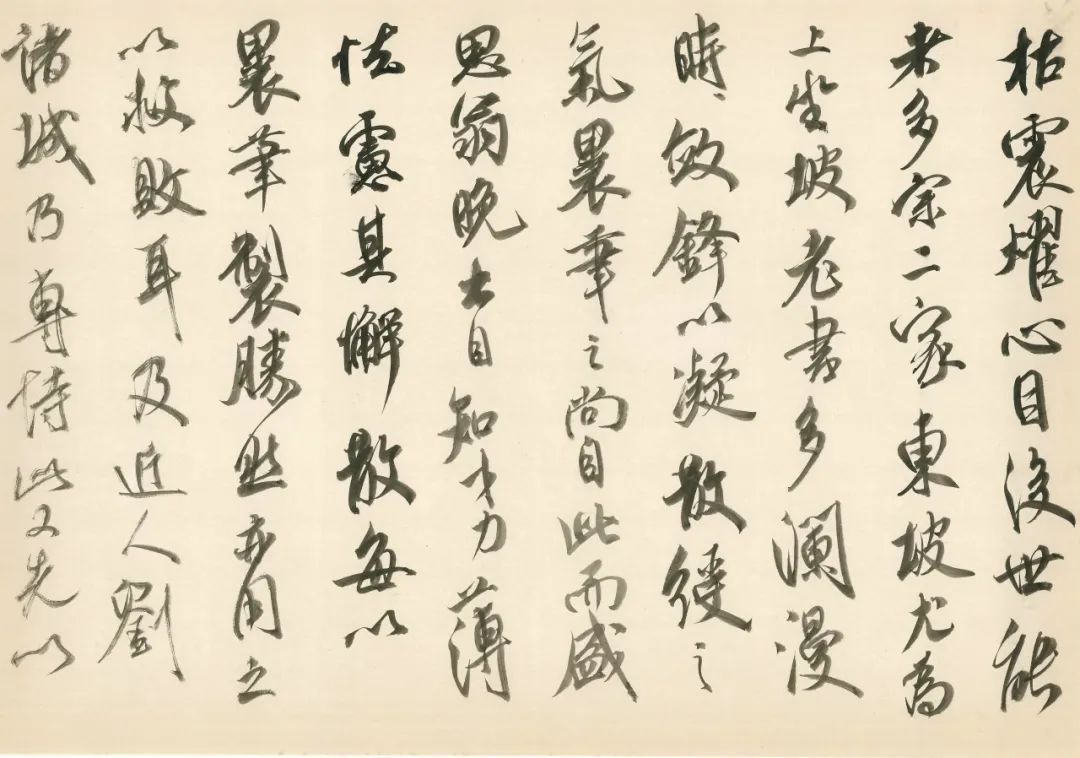 枯震耀心目後世能
者多宗二家東坡尤為
上坐坡老書多瀾漫
時時斂鋒以凝散緩之
氣裹筆之尚自此而盛
思翁晚出自知才力薄
怯慮其懈散每以
裹筆製勝然亦用之
以救敗耳及近人劉
諸城乃專恃此又先以